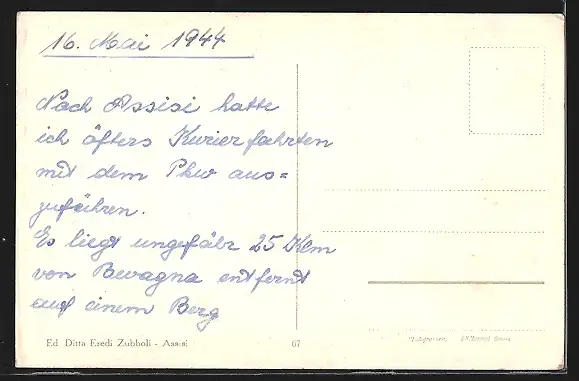 16. Mai 1944
Nach Assisi hatte
ich öfters Kurierfahrten
mit dem Pkw aus=
zuführen.
Es liegt ungefähr 25 Klm
von Bevagna entfernt
auf einem Berg
Ed Ditta Eredi Zubboli - Assisi 67